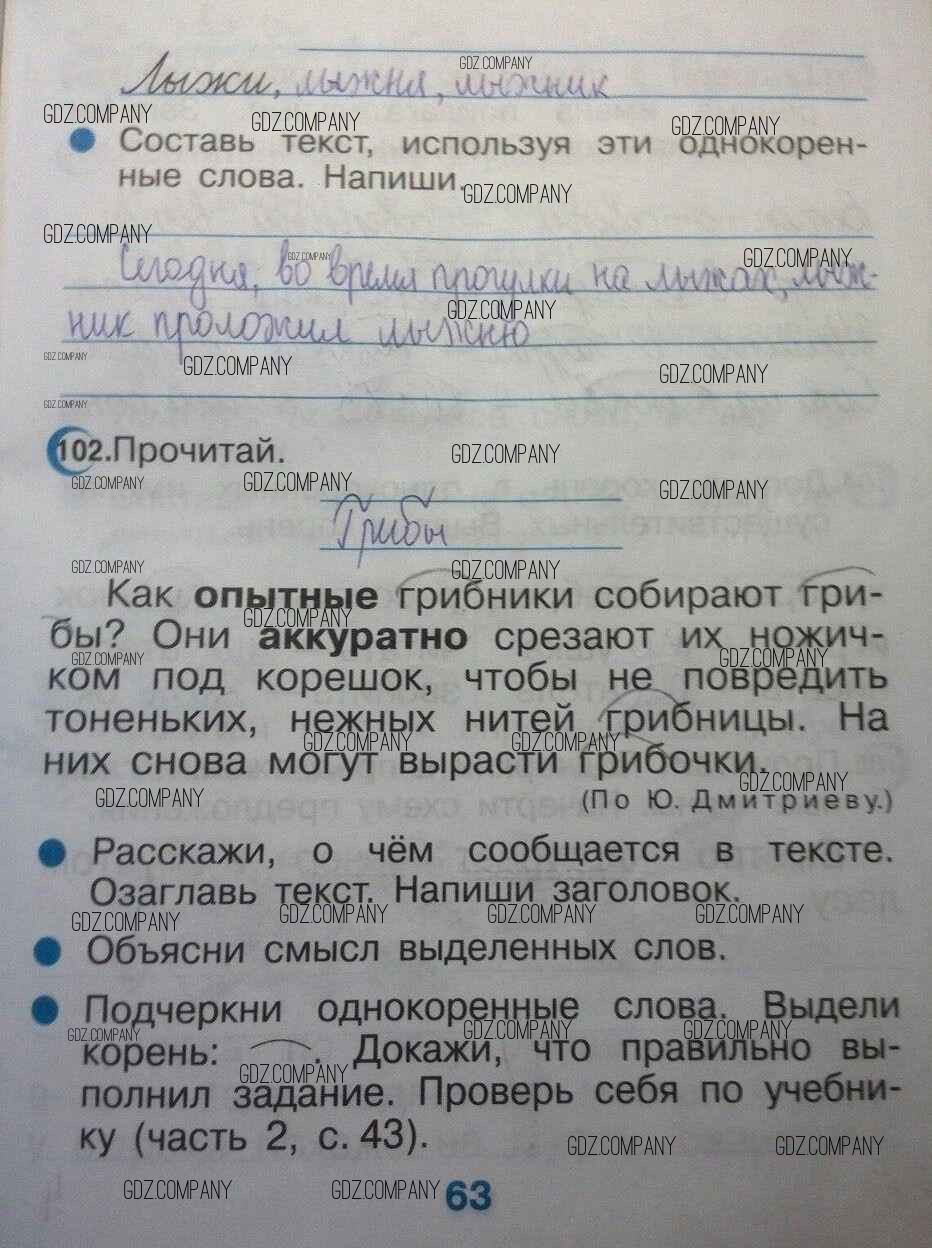 Лыжи, лыжня, лыжник
Составь текст, используя эти однокорен-
ные слова. Напиши.
Сегодня, во время прогулки на лыжах, лыж-
ник проложил лыжню
102. Прочитай.
Грибы
Как опытные грибники собирают гри-
бы? Они аккуратно срезают их ножич-
ком под корешок, чтобы не повредить
тоненьких, нежных нитей грибницы. На
них снова могут вырасти грибочки.
(По Ю. Дмитриеву.)
Расскажи, о чём сообщается в тексте.
Озаглавь текст. Напиши заголовок.
Объясни смысл выделенных слов.
Подчеркни однокоренные слова. Выдели
корень: . Докажи, что правильно вы-
полнил задание. Проверь себя по учебни-
ку (часть 2, с. 43).
63
GDZ.COMPANY